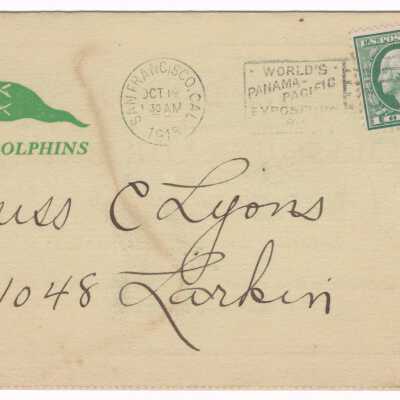 SAN FRANCISCO, CAL.
OCT 1
30 AM
1915
WORLD'S
PANAMA-PACIFIC
EXPOSITION
U.S. POS
1
OLPHINS
uss C Lyons
1048 Larkin